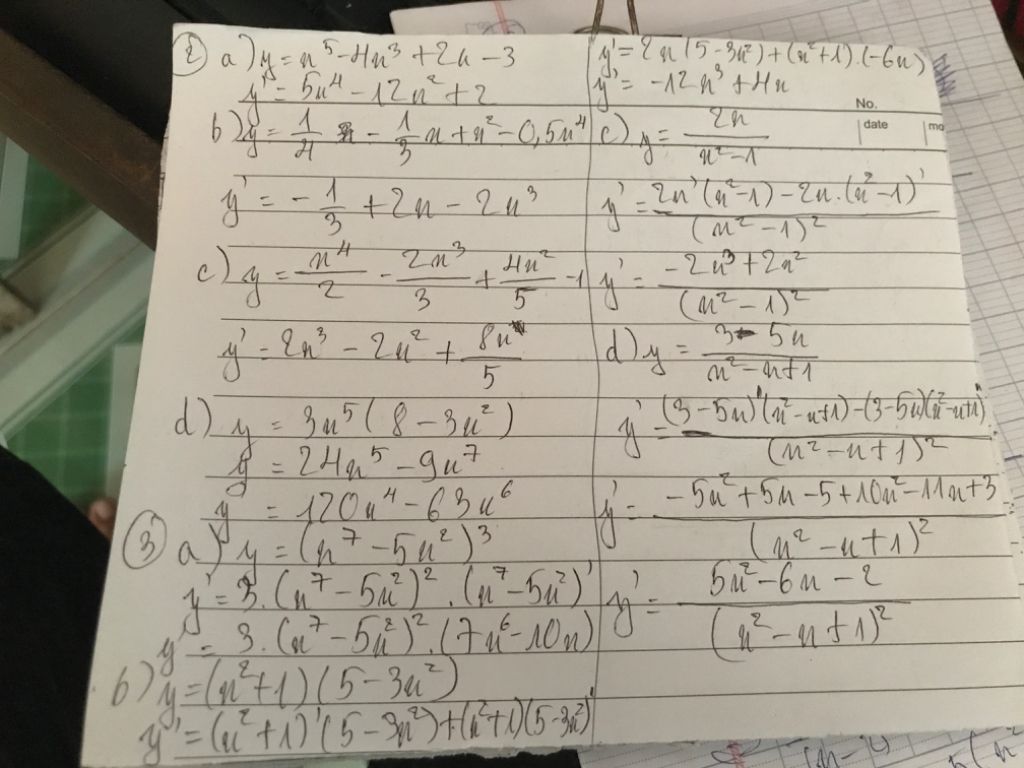 ② a) y = x⁵ - 4x³ + 2x - 3
y' = 5x⁴ - 12x² + 2
b) y = 1/4 - 1/3 x + x² - 0,5x⁴
y' = - 1/3 + 2x - 2x³
c) y = x⁴/2 - 2x³/3 + 4x²/5 - 1
y' = 2x³ - 2x² + 8x/5
d) y = 3x⁵(8 - 3x²)
y = 24x⁵ - 9x⁷
y' = 120x⁴ - 63x⁶
③ a) y = (x⁷ - 5x²)³
y' = 3.(x⁷ - 5x²)².(x⁷ - 5x²)'
y' = 3.(x⁷ - 5x²)².(7x⁶ - 10x)
b) y = (x² + 1)(5 - 3x²)
y' = (x² + 1)'(5 - 3x²) + (x² + 1)(5 - 3x²)'
y' = 2x(5 - 3x²) + (x² + 1).(-6x)
y' = -12x³ + 4x
No.
date
mo
c) y = 2x/(x² - 1)
y' = (2x'(x² - 1) - 2x.(x² - 1)')/(x² - 1)²
y' = (-2x³ + 2x²)/(x² - 1)²
d) y = (3 - 5x)/(x² - x + 1)
y' = ((3 - 5x)'(x² - x + 1) - (3 - 5x)(x² - x + 1)')/(x² - x + 1)²
y' = (-5x² + 5x - 5 + 10x² - 11x + 3)/(x² - x + 1)²
y' = (5x² - 6x - 2)/(x² - x + 1)²